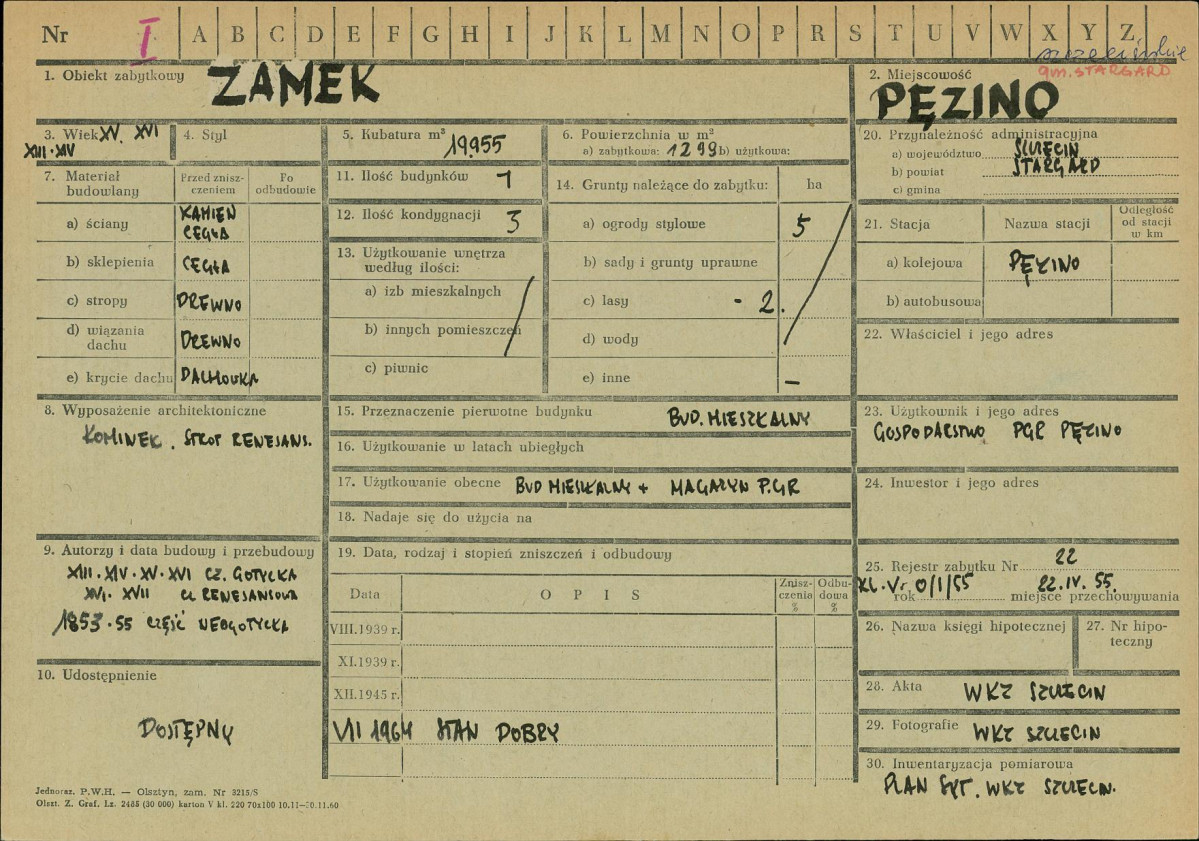 Nr I A B C D E F G H I J K L M N O P R S T U V W X Y Z
szczecińskie
gm. STARGARD
1. Obiekt zabytkowy ZAMEK
2. Miejscowość
PĘZINO
3. Wiek XV. XVI
XIII-XIV
4. Styl
5. Kubatura m³
19.955
6. Powierzchnia w m²
a) zabytkowa: 1299 b) użytkowa:
20. Przynależność administracyjna
a) województwo SZCZECIN
b) powiat STARGARD
c) gmina
7. Materiał budowlany
Przed zniszczeniem
Po odbudowie
a) ściany KAMIEŃ
CEGŁA
b) sklepienia CEGŁA
c) stropy DREWNO
d) wiązania dachu DREWNO
e) krycie dachu DACHÓWKA
11. Ilość budynków 1
12. Ilość kondygnacji 3
13. Użytkowanie wnętrza
według ilości:
a) izb mieszkalnych
b) innych pomieszczeń
c) piwnic
14. Grunty należące do zabytku: ha
a) ogrody stylowe 5
b) sady i grunty uprawne
c) lasy - 2.
d) wody
e) inne –
21. Stacja
Nazwa stacji
Odległość
od stacji
w km
a) kolejowa PĘZINO
b) autobusowa
22. Właściciel i jego adres
8. Wyposażenie architektoniczne
KOMINEK. STROP RENESANS.
15. Przeznaczenie pierwotne budynku BUD. MIESZKALNY
16. Użytkowanie w latach ubiegłych
17. Użytkowanie obecne BUD MIESZKALNY + MAGAZYN P.G.R
18. Nadaje się do użycia na
23. Użytkownik i jego adres
GOSPODARSTWO PGR PĘZINO
24. Inwestor i jego adres
9. Autorzy i data budowy i przebudowy
XIII.XIV.XV.XVI CZ. GOTYCKA
XVI. XVII CZ RENESANSOWA
1853.55 CZĘŚĆ NEOGOTYCKA
19. Data, rodzaj i stopień zniszczeń i odbudowy
Data
OPIS
Zniszczenia %
Odbudowa %
VIII.1939 r.
XI.1939 r.
XII.1945 r.
VII 1964 STAN DOBRY
25. Rejestr zabytku Nr 22
KL.V. 0/1/55 22.IV.55.
rok miejsce przechowywania
26. Nazwa księgi hipotecznej
27. Nr hipoteczny
10. Udostępnienie
DOSTĘPNY
28. Akta WKZ SZCZECIN
29. Fotografie WKZ SZCZECIN
30. Inwentaryzacja pomiarowa
PLAN SYT. WKZ SZCZECIN.
Jednoraz. P.W.H. — Olsztyn, zam. Nr 3215/S
Olszt. Z. Graf. Lz. 2485 (30 000) karton V kl. 220 70x100 10.11—30.11.60